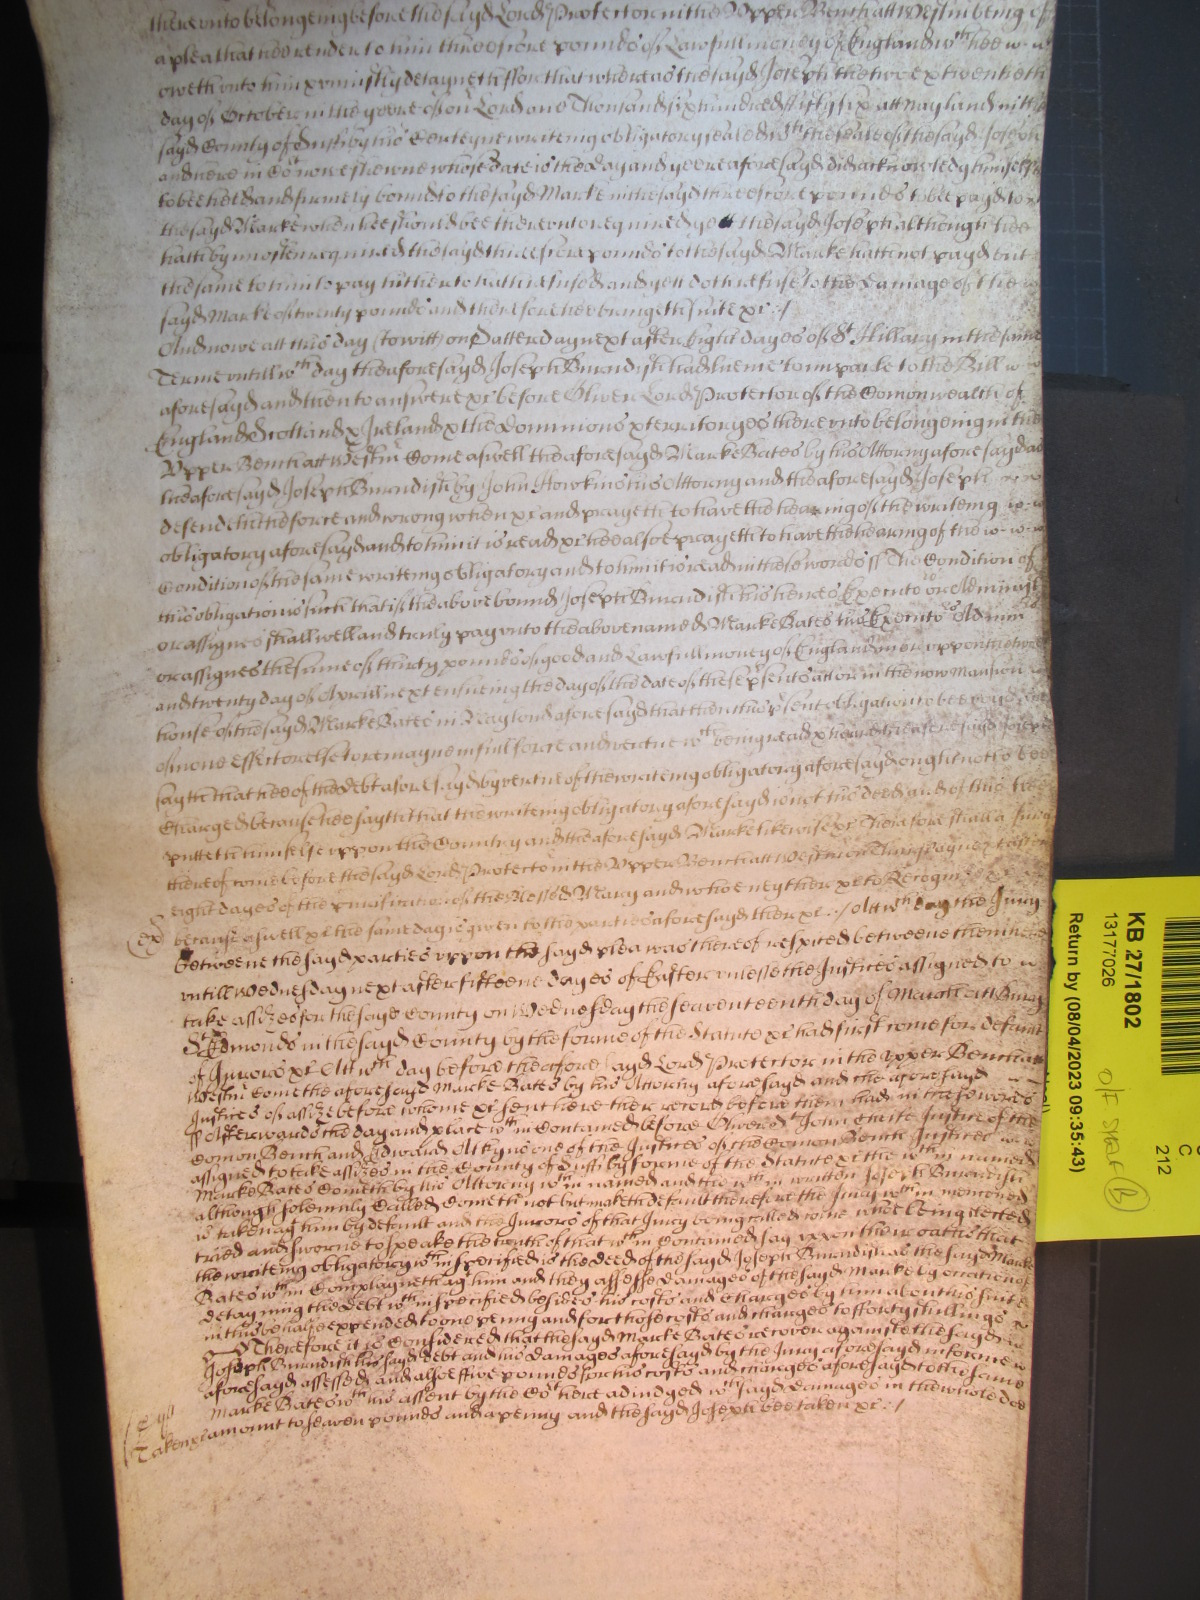 thereunto belongeing before the sayd Lord Protector in the Upper Bench att Westm being of
a plea that hee render to him threescore pounds of Lawfull money of England wch hee
oweth unto him & uniustly detayneth ffor that whereas the sayd Joseph the two & twentieth
day of October in the yeere of our Lord one Thousand six hundred ffifty six att Nayland in the
sayd County of Suff by his Certeyne writeing obligatory sealed wth the seale of the sayd Joseph
and here in Ct nowe shewne whose date is the day and yeere aforesayd did acknowledg himselfe
to bee held and firmely bound to the sayd Marke in the sayd threescore pounds to bee payd to
the sayd Marke when hee should bee thereunto required yett the sayd Joseph although hee
hath byn often required the sayd threescore pounds to the sayd Marke hath not payd but
the same to him to pay hitherto hath refused and yett doth refuse to the damage of the
sayd Marke of twenty pounds and therefore hee bringeth suite &c :/
And nowe att this day (to witt) on Satterday next after Eight dayes of St Hillary in the same
Terme untill wch day the aforesayd Joseph Burndish had lycence to imparle to the Bill
aforesayd and then to answere &c before Oliver Lord Protector of the Comonwealth of
England Scotland & Ireland & the Dominions & territoryes thereunto belongeing in the
Upper Bench att Westm Come aswell the aforesayd Marke Bates by his Attorny aforesayd as
the aforesayd Joseph Burndish by John Hawkins his Attorny and the aforesayd Joseph
defendeth the force and wrong when &c and prayeth to have the heareing of the writeing
obligatory aforesayd and to him it is read &c hee alsoe prayeth to have the heareing of the
Condition of the same writeing obligatory and to him it is read in these words ss The Condition of
this obligation is such that if the above bound Joseph Burndish his heires Executors Administ
or assignes shall well and truly pay unto the abovenamed Marke Bates his Executors Admin
or assignes the some of thirty pounds of good and Lawfull money of England upon the two
and twenty day of Aprill next ensueing the day of the date of these psents att or in the now Mansion
house of the sayd Marke Bates in Nayland aforesayd that then this psent obligation to bee voyd and
of none effect or else to remayne in full force and vertue wch being read & heard the aforesayd Joseph
sayth that hee of the debt aforesayd by vertue of the writeing obligatory aforesayd ought not to bee
Charged because hee sayth that the writeing obligatory aforesayd is not his deed and of this hee
putteth himselfe uppon the Country and the aforesayd Marke likewise &c Therefore shall a Jury
thereof come before the sayd Lord Protector in the Upper Bench att Westm on next after
eight dayes of the purification of the blessed Mary and who neyther &c to Recognize
because aswell &c the same day is given to the parties aforesayd there &c :/ Att wch day the Jury
betweene the sayd parties uppon the sayd plea was thereof respited betweene them here
untill Wednesday next after fifteene dayes of Easter unlesse the Justices assigned to
take assizes for the sayd County on Wednesday the seaventeenth day of March att Bury
St Edmonds in the sayd County by the forme of the Statute &c had first come for default
of Jurors &c Att wch day before the aforesayd Lord Protector in the Upper Bench att
Westm Come the aforesayd Marke Bates by his Attorny aforesayd and the aforesayd
Justices of assize before whome &c sent here their record before them had in these words
ss Afterwards the day and place wthin Contained before Oliver St John Cheife Justice of the
Comon Bench and Edward Atkyns one of the Justices of the Comon Bench Justices
assigned to take assizes in the County of Suff by forme of the Statute &c the wthin named
Marke Bates Cometh by his Attorny wthin named and the wthin written Joseph Burndish
although solemnly called Cometh not but maketh default therefore the Jury wthin mentioned
is taken agt him by default and the Jurors of that Jury being called come who being elected
tried and sworne to speake the truth of that wthin Contained say uppon their oathes that
the writeing obligatory wthin specified is the deed of the sayd Joseph Burndish as the sayd Marke
Bates wthin Complayneth agt him and they assesse damages of the sayd Marke by occation of
detayning the debt wthin specified besides his costs and Charges by him about his suite
in this behalfe expended to one penny and for those costs and charges to fforty shillings
Therefore it is Considered that the sayd Marke Bates recover againste the sayd
Joseph Burndish his sayd debt and his damages aforesayd by the Jury aforesayd in forme
aforesayd assessed and alsoe ffive pounds for his costs and charges aforesayd to the same
Marke Bates wth his assent by the Ct here adiudged wch sayd damages in the whole doe
Taken &c amount to seaven pounds and a penny and the sayd Joseph bee taken &c :/
KB 27/1802
13177026
Return by (08/04/2023 09:35:43)
O/F
B
C
212